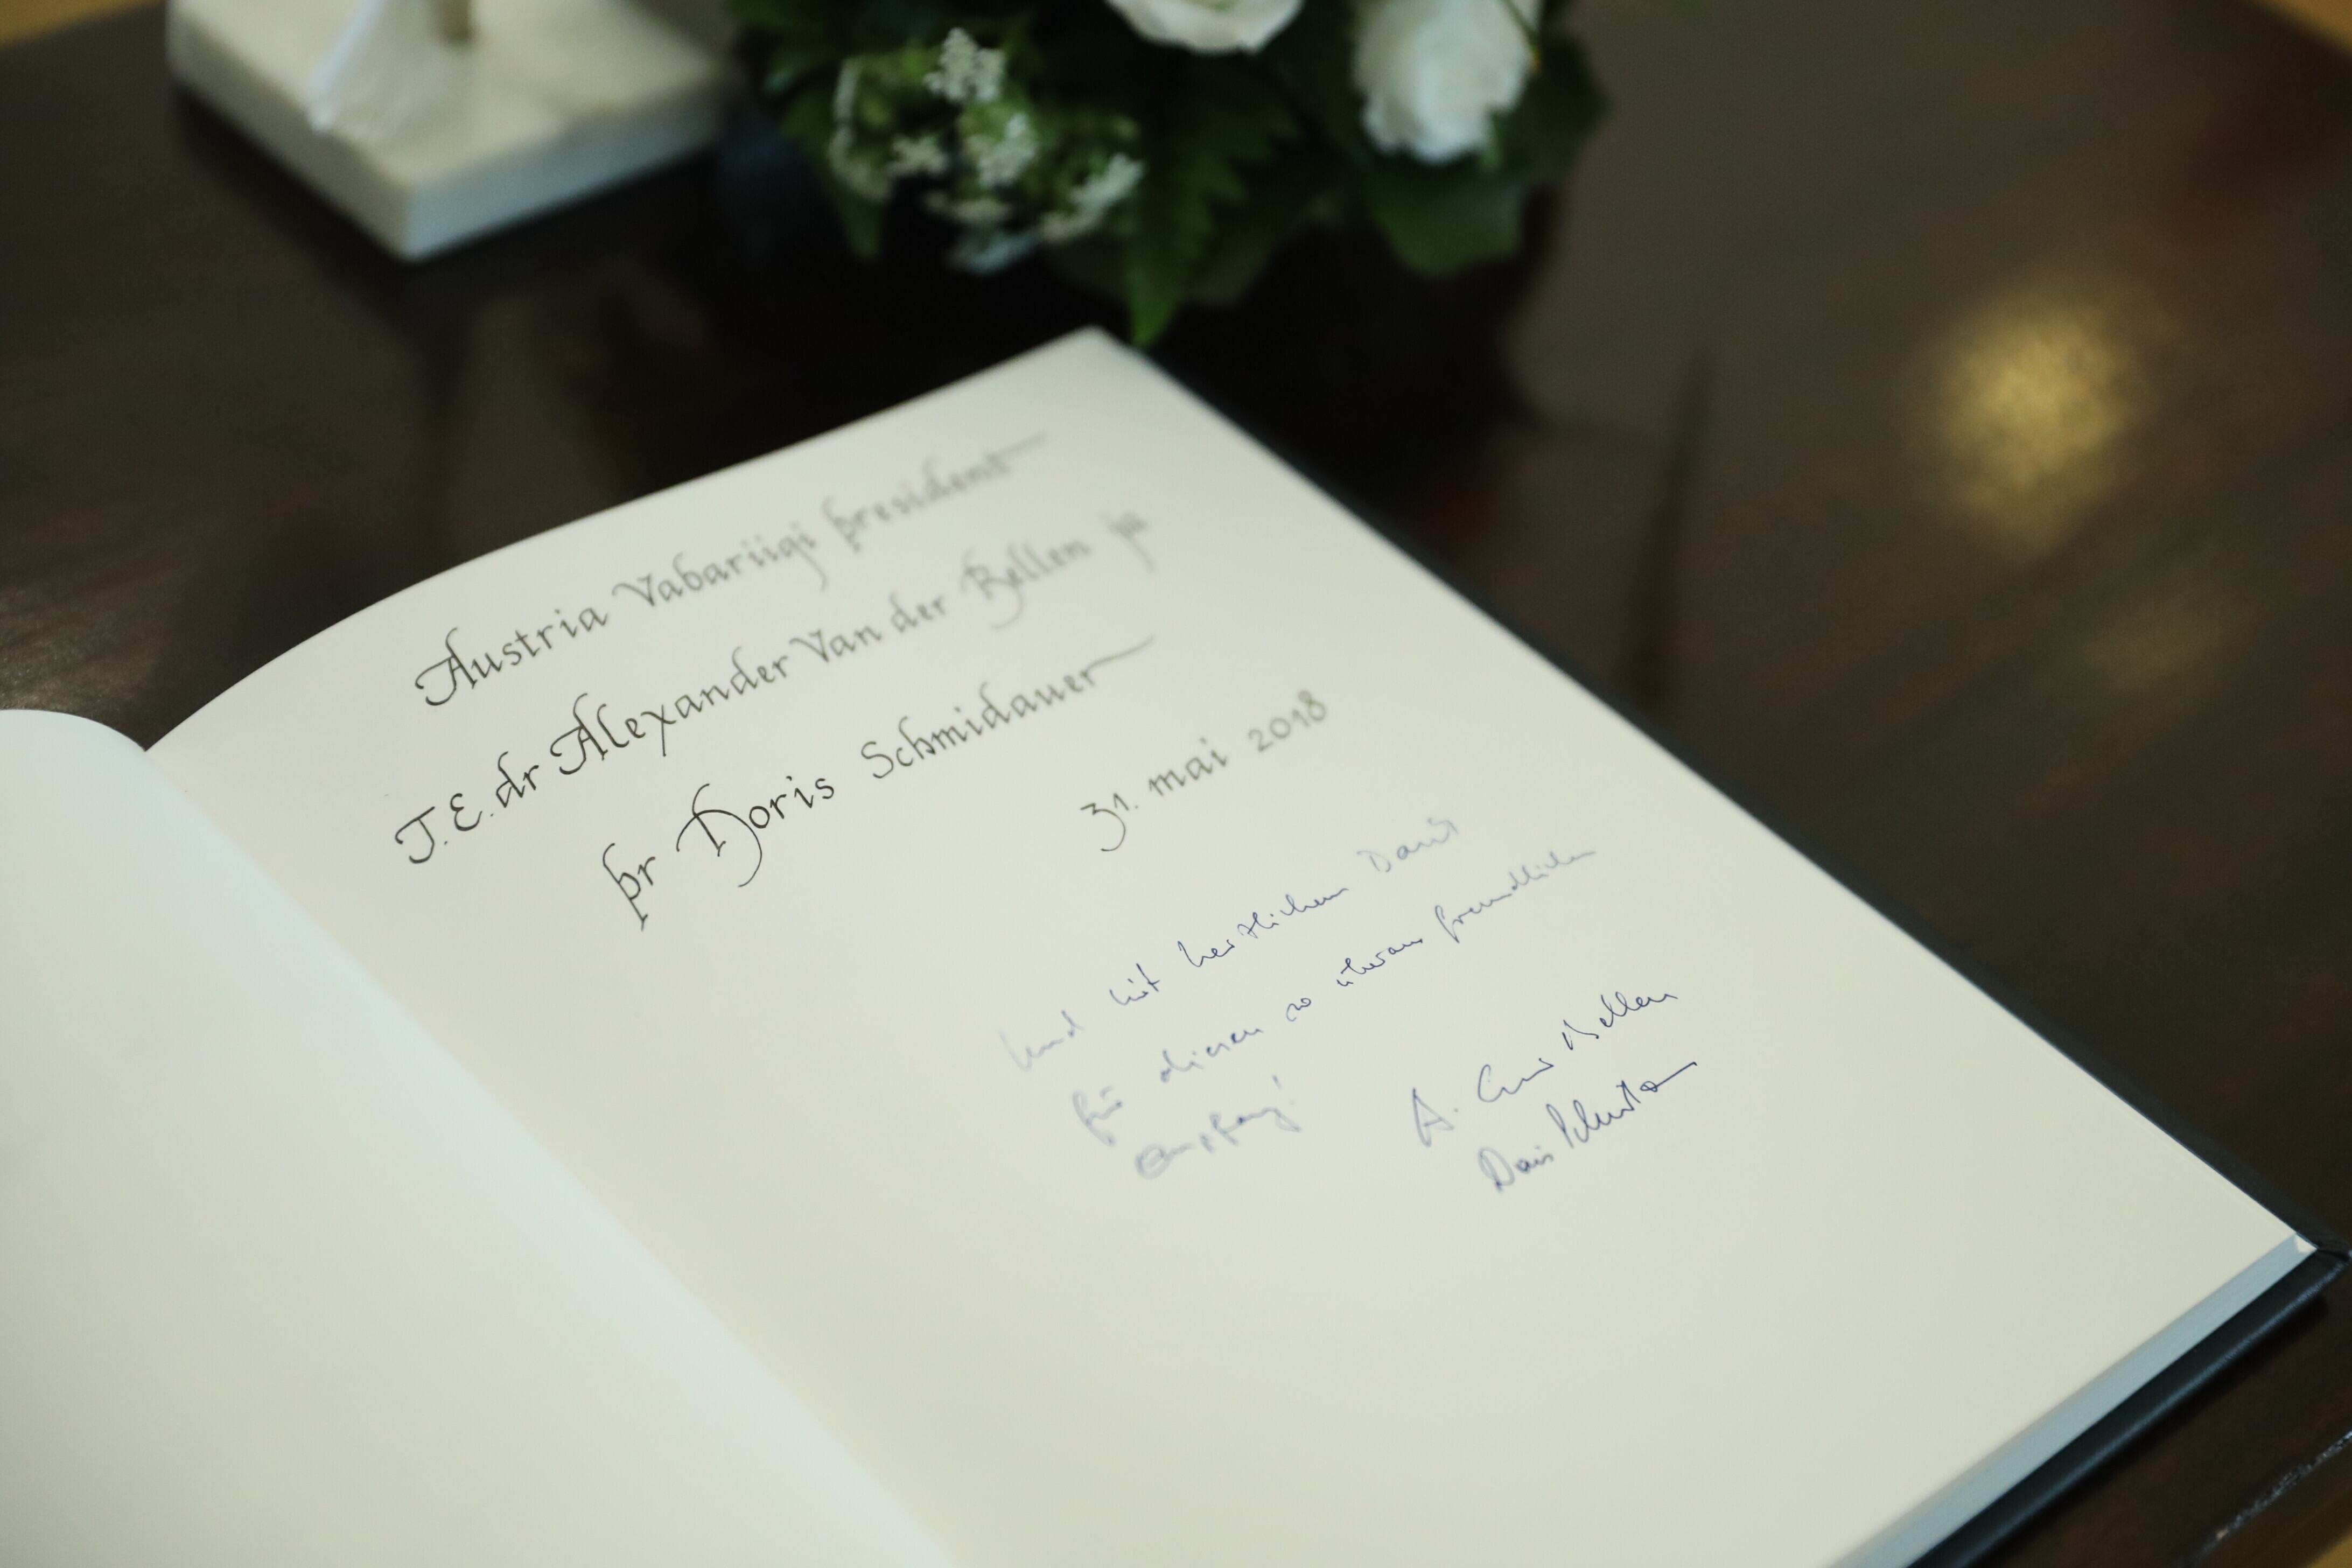 Austria Vabariigi president
T.E. dr Alexander Van der Bellen ja
pr Doris Schmidauer
31. mai 2018
und mit herzlichem Dank
für diesen so überaus freundlichen
Empfang!
A. Van der Bellen
Doris Schmidauer